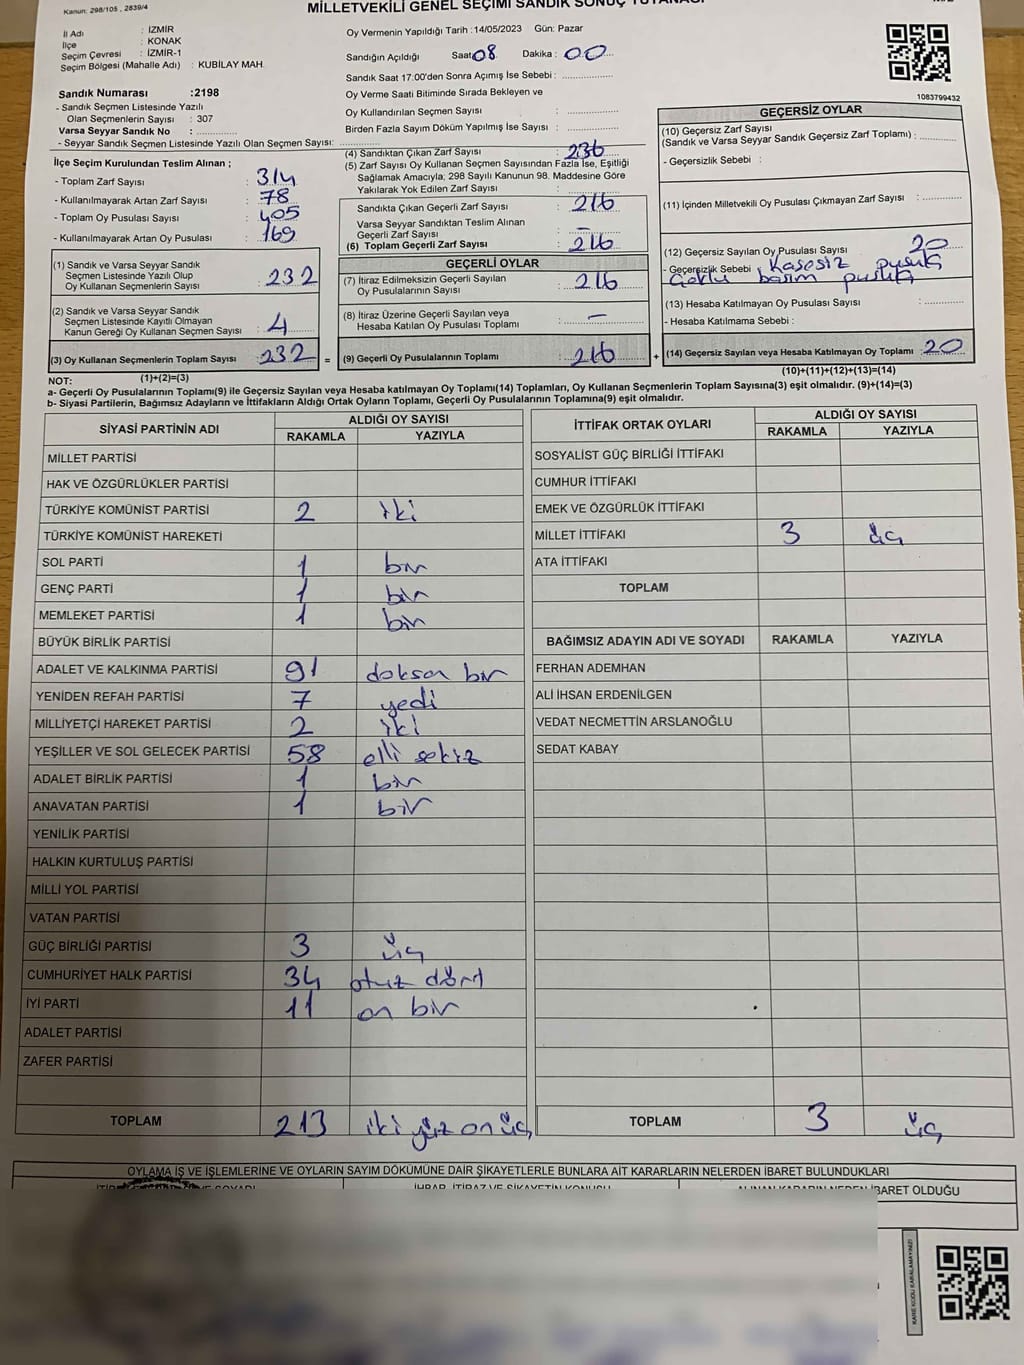 Kanun: 298/105 , 2839/4
MİLLETVEKİLİ GENEL SEÇİMİ SANDIK SONUÇ TUTANAĞI
İl Adı : İZMİR
İlçe : KONAK
Seçim Çevresi : İZMİR-1
Seçim Bölgesi (Mahalle Adı) : KUBİLAY MAH.
Sandık Numarası :2198
- Sandık Seçmen Listesinde Yazılı
Olan Seçmenlerin Sayısı : 307
Varsa Seyyar Sandık No :
- Seyyar Sandık Seçmen Listesinde Yazılı Olan Seçmen Sayısı:
Oy Vermenin Yapıldığı Tarih :14/05/2023 Gün: Pazar
Sandığın Açıldığı Saat: 08 Dakika : 00
Sandık Saat 17:00'den Sonra Açımış İse Sebebi :
Oy Verme Saati Bitiminde Sırada Bekleyen ve
Oy Kullandırılan Seçmen Sayısı :
Birden Fazla Sayım Döküm Yapılmış İse Sayısı :
1083799432
İlçe Seçim Kurulundan Teslim Alınan ;
- Toplam Zarf Sayısı : 314
- Kullanılmayarak Artan Zarf Sayısı : 78
- Toplam Oy Pusulası Sayısı : 405
- Kullanılmayarak Artan Oy Pusulası : 169
(1) Sandık ve Varsa Seyyar Sandık
Seçmen Listesinde Yazılı Olup
Oy Kullanan Seçmenlerin Sayısı : 232
(2) Sandık ve Varsa Seyyar Sandık
Seçmen Listesinde Kayıtlı Olmayan
Kanun Gereği Oy Kullanan Seçmen Sayısı : 4
(3) Oy Kullanan Seçmenlerin Toplam Sayısı : 232 =
(1)+(2)=(3)
(4) Sandıktan Çıkan Zarf Sayısı : 236
(5) Zarf Sayısı Oy Kullanan Seçmen Sayısından Fazla İse, Eşitliği
Sağlamak Amacıyla; 298 Sayılı Kanunun 98. Maddesine Göre
Yakılarak Yok Edilen Zarf Sayısı :
Sandıkta Çıkan Geçerli Zarf Sayısı : 216
Varsa Seyyar Sandıktan Teslim Alınan
Geçerli Zarf Sayısı : –
(6) Toplam Geçerli Zarf Sayısı : 216
GEÇERLİ OYLAR
(7) İtiraz Edilmeksizin Geçerli Sayılan
Oy Pusulalarının Sayısı : 216
(8) İtiraz Üzerine Geçerli Sayılan veya
Hesaba Katılan Oy Pusulası Toplamı : –
(9) Geçerli Oy Pusulalarının Toplamı : 216 +
GEÇERSİZ OYLAR
(10) Geçersiz Zarf Sayısı
(Sandık ve Varsa Seyyar Sandık Geçersiz Zarf Toplamı) :
- Geçersizlik Sebebi :
(11) İçinden Milletvekili Oy Pusulası Çıkmayan Zarf Sayısı :
(12) Geçersiz Sayılan Oy Pusulası Sayısı : 20
- Geçersizlik Sebebi : Kaşesiz pusula
Çoklu basım pusula
(13) Hesaba Katılmayan Oy Pusulası Sayısı :
- Hesaba Katılmama Sebebi :
(14) Geçersiz Sayılan veya Hesaba Katılmayan Oy Toplamı : 20
(10)+(11)+(12)+(13)=(14)
NOT:
a- Geçerli Oy Pusulalarının Toplamı(9) ile Geçersiz Sayılan veya Hesaba katılmayan Oy Toplamı(14) Toplamları, Oy Kullanan Seçmenlerin Toplam Sayısına(3) eşit olmalıdır. (9)+(14)=(3)
b- Siyasi Partilerin, Bağımsız Adayların ve İttifakların Aldığı Ortak Oyların Toplamı, Geçerli Oy Pusulalarının Toplamına(9) eşit olmalıdır.
SİYASİ PARTİNİN ADI ALDIĞI OY SAYISI
RAKAMLA YAZIYLA
MİLLET PARTİSİ
HAK VE ÖZGÜRLÜKLER PARTİSİ
TÜRKİYE KOMÜNİST PARTİSİ 2 iki
TÜRKİYE KOMÜNİST HAREKETİ
SOL PARTİ 1 bir
GENÇ PARTİ 1 bir
MEMLEKET PARTİSİ 1 bir
BÜYÜK BİRLİK PARTİSİ
ADALET VE KALKINMA PARTİSİ 91 doksan bir
YENİDEN REFAH PARTİSİ 7 yedi
MİLLİYETÇİ HAREKET PARTİSİ 2 iki
YEŞİLLER VE SOL GELECEK PARTİSİ 58 elli sekiz
ADALET BİRLİK PARTİSİ 1 bir
ANAVATAN PARTİSİ 1 bir
YENİLİK PARTİSİ
HALKIN KURTULUŞ PARTİSİ
MİLLİ YOL PARTİSİ
VATAN PARTİSİ
GÜÇ BİRLİĞİ PARTİSİ 3 üç
CUMHURİYET HALK PARTİSİ 34 otuz dört
İYİ PARTİ 11 on bir
ADALET PARTİSİ
ZAFER PARTİSİ
TOPLAM 213 iki yüz on üç
İTTİFAK ORTAK OYLARI ALDIĞI OY SAYISI
RAKAMLA YAZIYLA
SOSYALİST GÜÇ BİRLİĞİ İTTİFAKI
CUMHUR İTTİFAKI
EMEK VE ÖZGÜRLÜK İTTİFAKI
MİLLET İTTİFAKI 3 üç
ATA İTTİFAKI
TOPLAM
BAĞIMSIZ ADAYIN ADI VE SOYADI RAKAMLA YAZIYLA
FERHAN ADEMHAN
ALİ İHSAN ERDENİLGEN
VEDAT NECMETTİN ARSLANOĞLU
SEDAT KABAY
TOPLAM 3 üç
OYLAMA İŞ VE İŞLEMLERİNE VE OYLARIN SAYIM DÖKÜMÜNE DAİR ŞİKAYETLERLE BUNLARA AİT KARARLARIN NELERDEN İBARET BULUNDUKLARI
İHBAR, İTİRAZ VE ŞİKAYETİN KONUSU
ALINAN KARARIN NEDEN İBARET OLDUĞU
KARE KODU KARALAMAYINIZ!